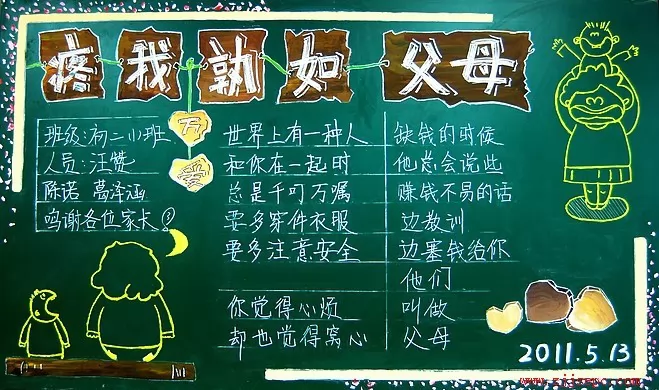 疼我孰如父母
班级:初二小班
人员:汪赞
陈诺 葛泽涵
鸣谢各位家长
万
爱
世界上有一种人
和你在一起时
总是千叮万嘱
要多穿件衣服
要多注意安全
你觉得心烦
却也觉得窝心
缺钱的时候
他总会说些
赚钱不易的话
边教训
边塞钱给你
他们
叫做
父母
2011.5.13